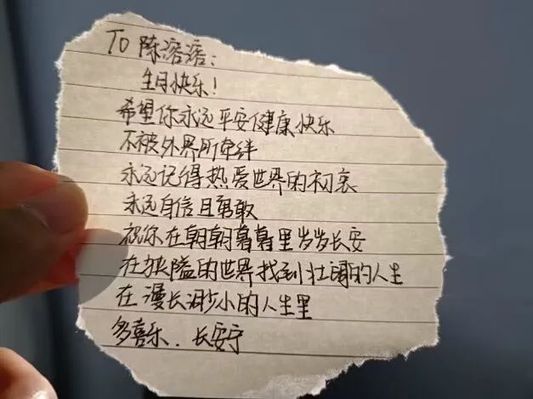 To 陈溶溶:
生日快乐!
希望你永远平安健康快乐
不被外界所牵绊
永远记得热爱世界的初衷
永远自信且勇敢
祝你在朝朝暮暮里岁岁长安
在狭隘的世界找到壮阔的人生
在漫长渺小的人生里
多喜乐.长安宁